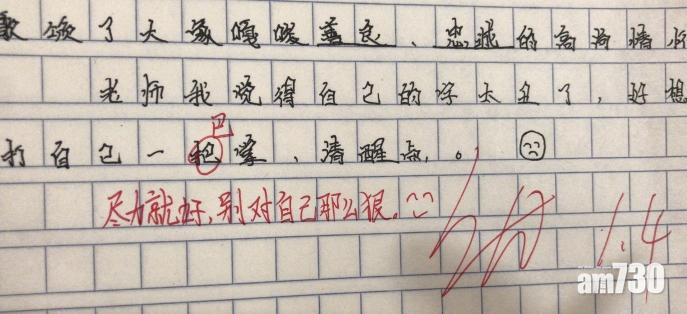 歌颂了大象嘎嘎善良、忠诚的高尚情
老师我觉得自己的字太丑了，好想
巴
打自己一把掌，清醒点。
尽力就好，别对自己那么狠。
1.4
am730